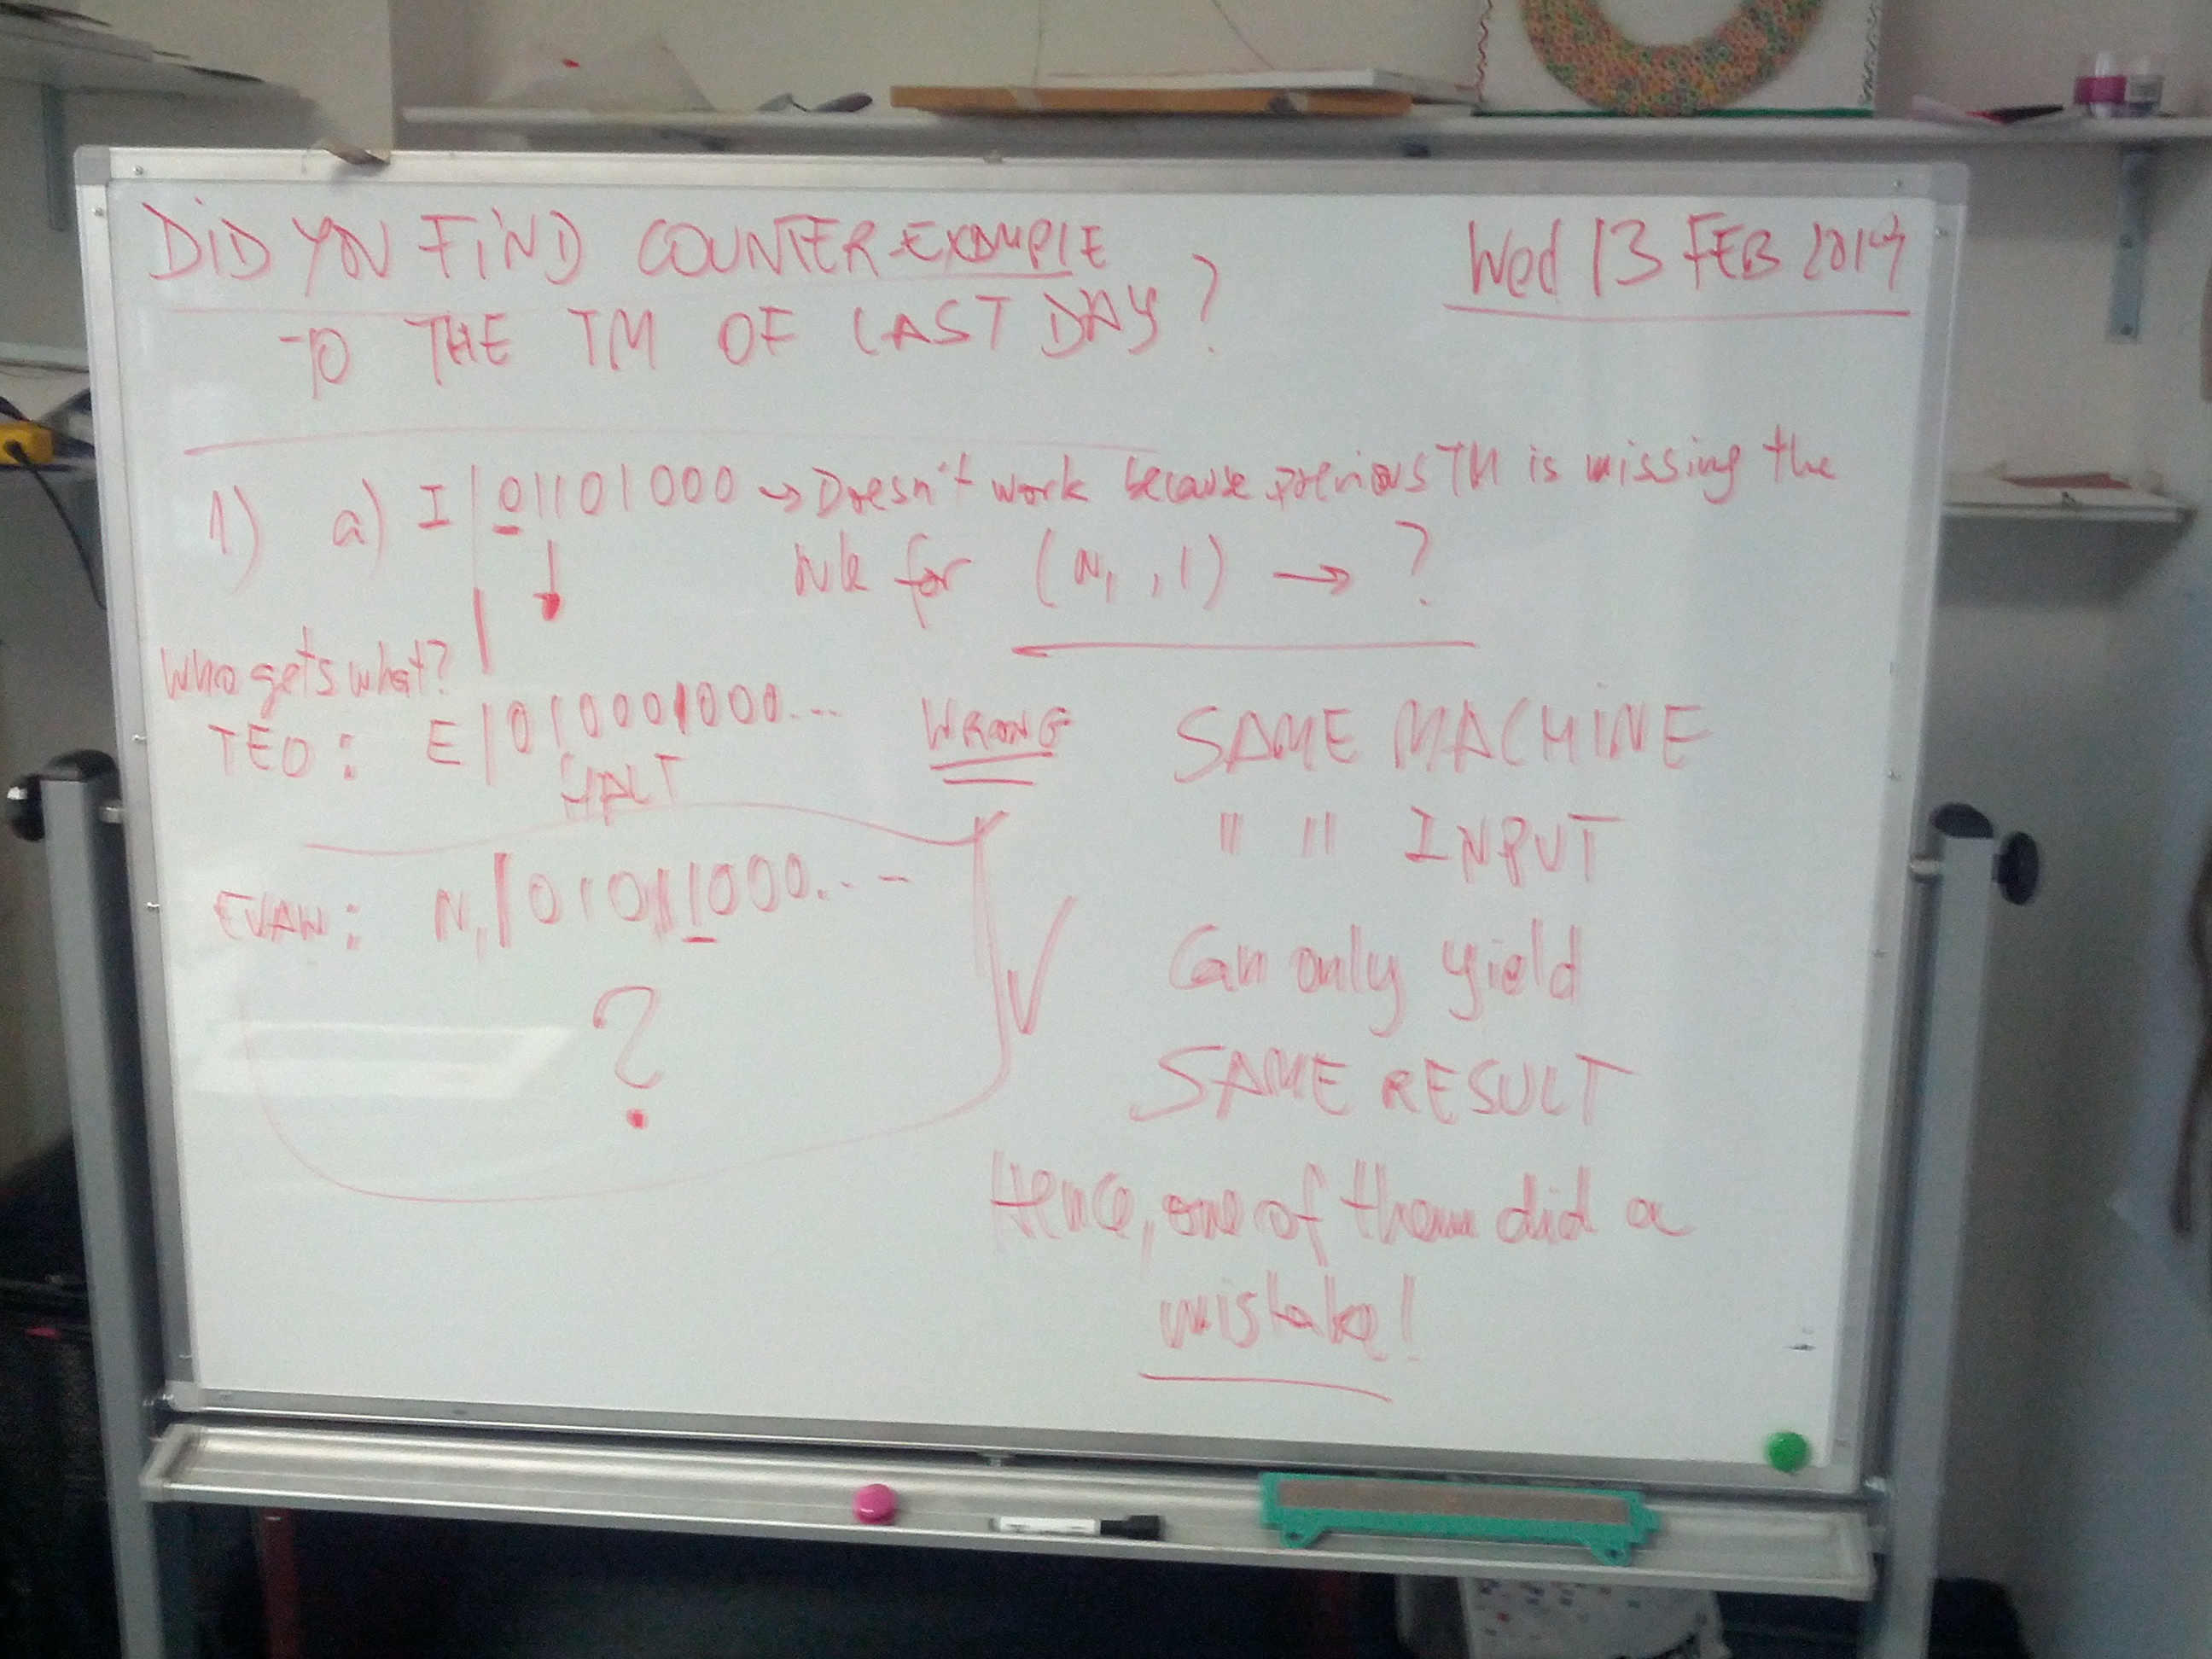 DID YOU FIND COUNTER-EXAMPLE
TO THE TM OF LAST DAY?
Wed 13 FEB 2019
1) a) I | 01101000 → Doesn't work because previous TM is missing the
rule for (N₁, 1) → ?
Who gets what?
TEO: E | 010001000...
HALT
WRONG
EVAN: N₁ | 01011000...
?
SAME MACHINE
" " INPUT
Can only yield
SAME RESULT
Hence, one of them did a
mistake!